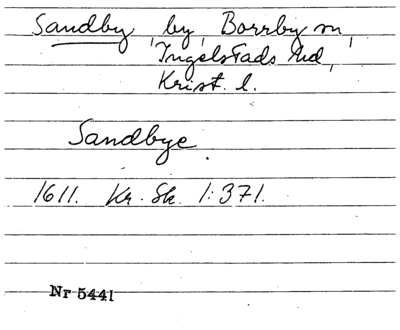 Sandby, by, Borrby sn,
Ingelstads hd,
Krist. l.
Sandbye.
1611. Kr. Sk. 1:371.
Nr 5441